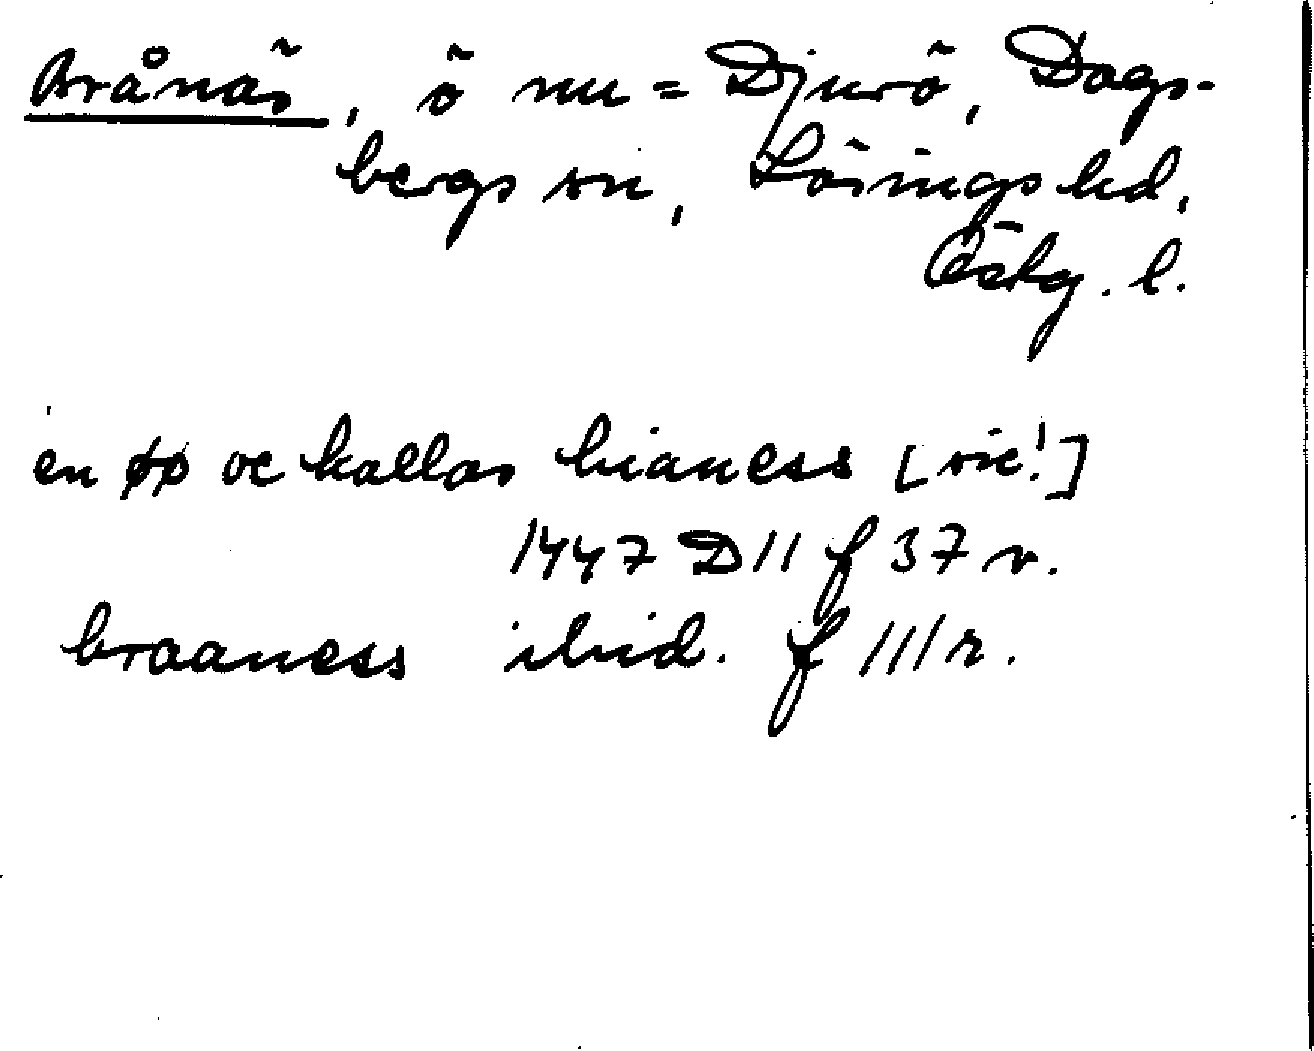 Brånäs, ö nu = Djurö, Dags-
bergs sn, Lösings hd,
Östg. l.
en øø oc kallas bianess [sic!]
1447 D11 f 37 v.
braaness ibid. f 111 r.